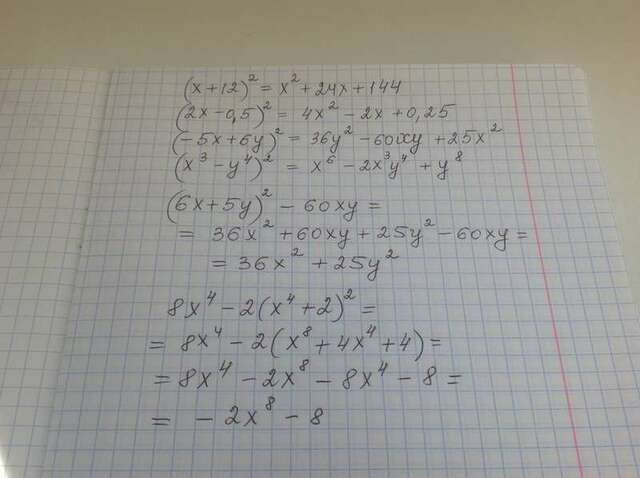 (x+12)² = x² + 24x + 144
(2x - 0,5)² = 4x² - 2x + 0,25
(-5x + 6y)² = 36y² - 60xy + 25x²
(x³ - y⁴)² = x⁶ - 2x³y⁴ + y⁸
(6x + 5y)² - 60xy =
= 36x² + 60xy + 25y² - 60xy =
= 36x² + 25y²
8x⁴ - 2(x⁴ + 2)² =
= 8x⁴ - 2(x⁸ + 4x⁴ + 4) =
= 8x⁴ - 2x⁸ - 8x⁴ - 8 =
= - 2x⁸ - 8